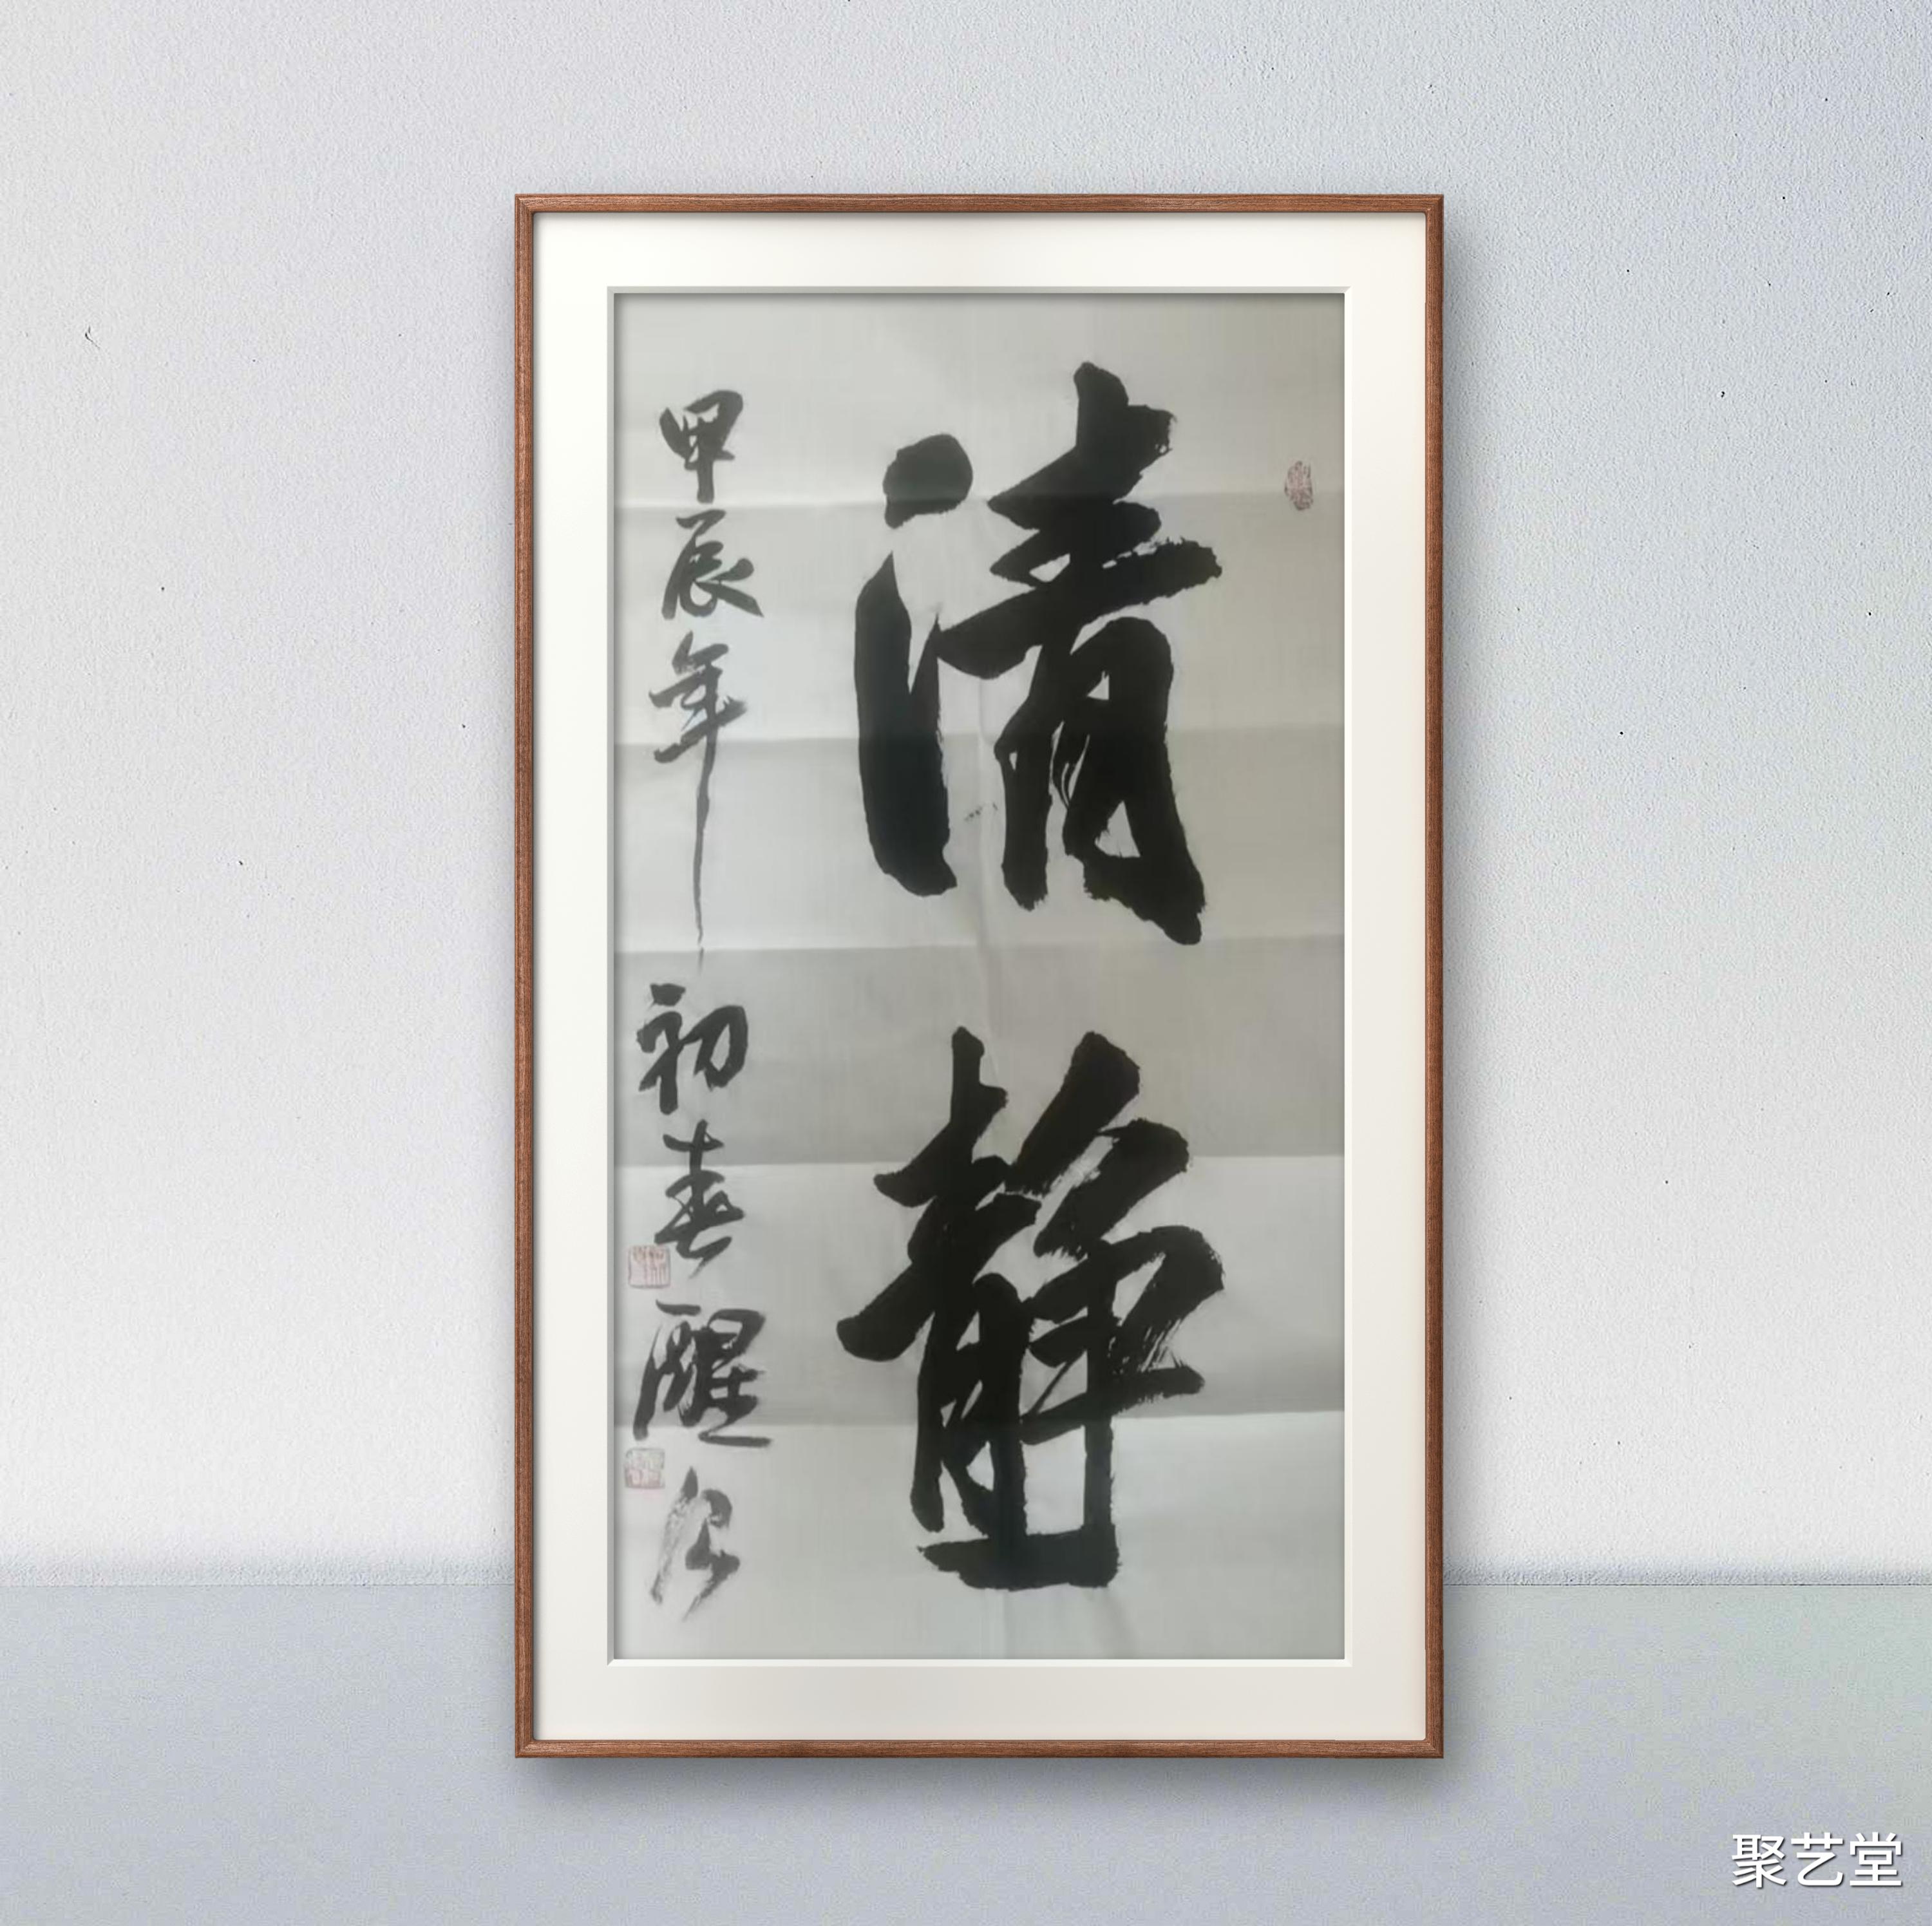 清静
甲辰年初春醒公
聚艺堂